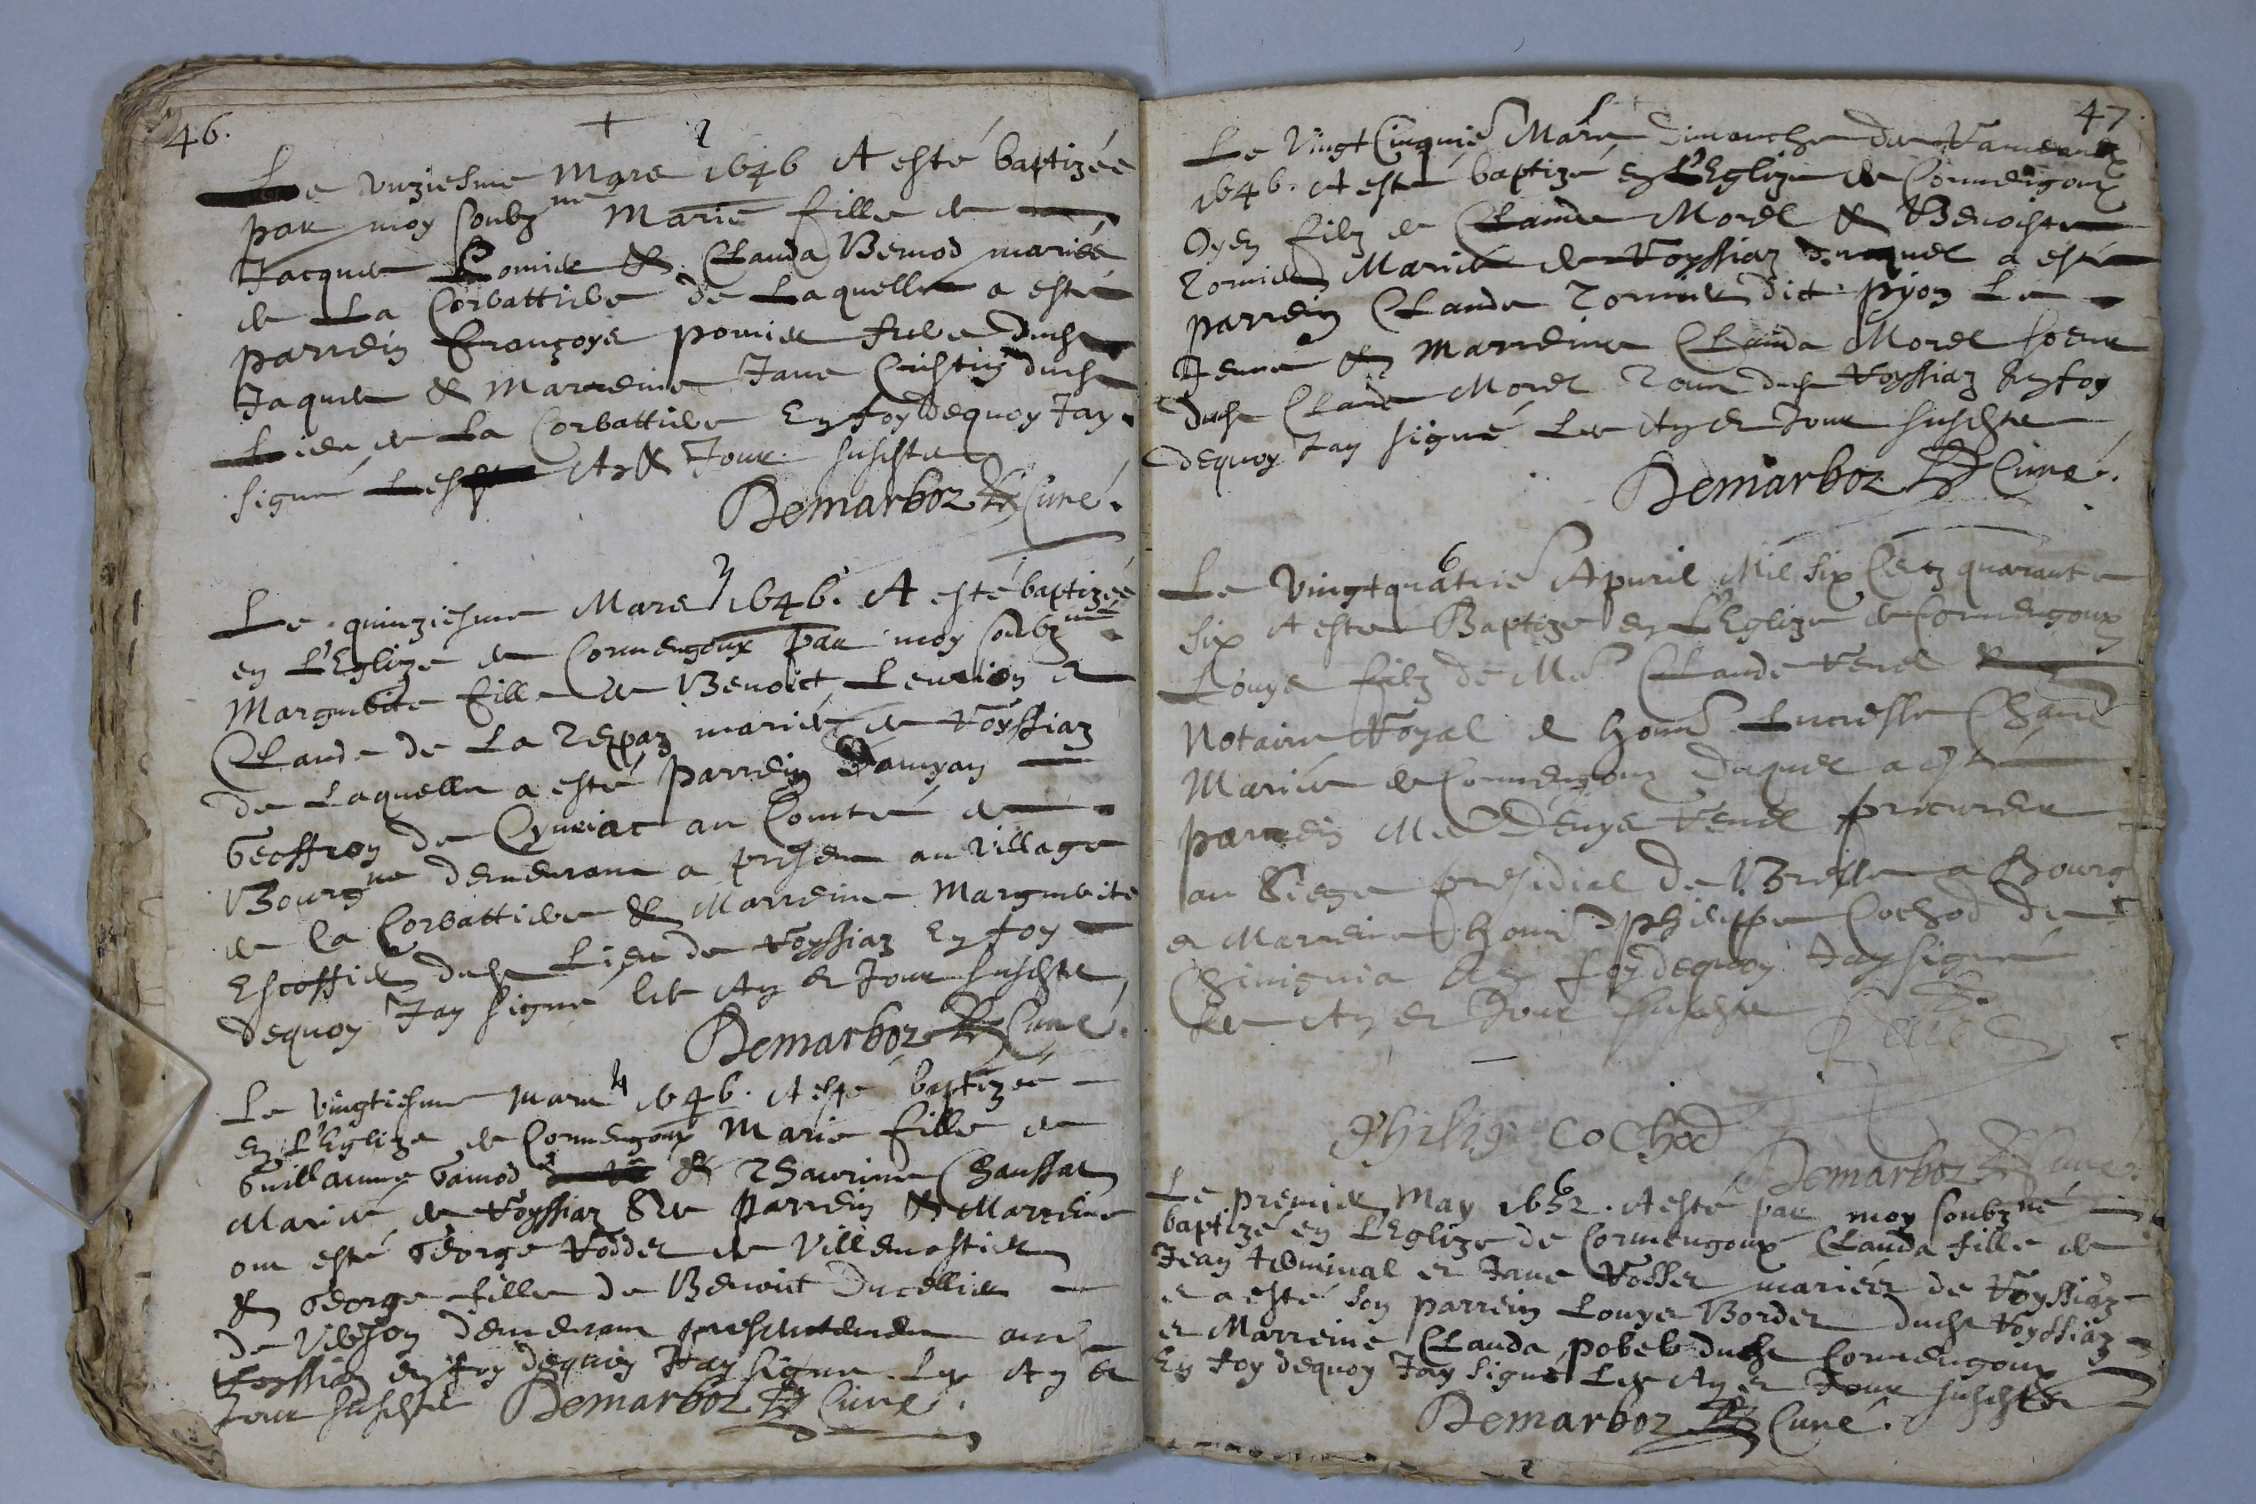 46.
Le unziesme Mars 1646 A esté baptizée
par moy soubz.né Marie fille de
Jacques Pomier & Clauda Bernod mariés
de La Corbattiere de Laquelle a esté
parrein Françoys pomier frere duch
Jaques & Marreine Jane Cristin duch
Lieu de La Corbattiere En foy dequoy Jay
signé Les An & Jour suschte
Demarboz Curé.
Le quinziesme Mars 1646. A esté baptizée
en L'Eglize de Cormengoux par moy soubz.né
Marguerite fille de Benoict &
Claude de La mariés de Voyssiaz
de Laquelle a esté parrein Damyan
Geoffroy de Cyuriac au Comté de
Bourg.ne demeurant a present au village
de la Corbattiere & Marreine Marguerite
Escoffier duch Lieu de Voyssiaz En foy
dequoy Jay signé les An & Jour suschte
Demarboz Curé.
Le vingtiesme mars 1646. A esté baptizée
en L'Eglize de Cormengoux Marie fille de
Guillaume & Chaussat
Mariés de Voyssiaz Ses parrein & Marreine
ont esté George de Villemostier
& George fille de Benoict Ducellier
de demeurant presentement auch
Voyssiaz en foy dequoy Jay signe Les An &
Jour suschte Demarboz Curé.
47
Le Vingt Cinquie Mars dimanche des Rameaux
1646. A esté baptizé en L'Eglize de Cormengoux
Oyen filz de Claude Morel & Benoiste
Mariés de Voyssiaz duquel a esté
parrein Claude dict pyon Le
Jeune & marreine Clauda Morel soeur
duch Claude Morel duch Voyssiaz En foy
dequoy Jay signé Les An & Jour suschte
Demarboz Curé.
Le Vingtquatrie Apuril Mil six Centz quarante
six A este Baptize en L'Eglize de Cormengoux
Louys filz de Me Claude
Notaire Royal & hon. Lucresse
Mariés de Cormengoux duquel a esté
parrein Me Denys procureur
au Siege presidial de Bresse a Bourg
et Marreine hon. Philippe Cochod de
En foy dequoy Jay signé
Les An & Jour suschte
Philip. Cochod
Demarboz Curé.
Le premier May 1652. A esté par moy soubz.né
baptizé en L'Eglize de Cormengoux Clauda fille de
Jean & Jane mariés de Voyssiaz
& a esté son parrein Louys Bordet duch Voyssiaz
& Marreine Clauda duch Cormengoux
En foy dequoy Jay signé Les An & Jour suschte
Demarboz Curé.